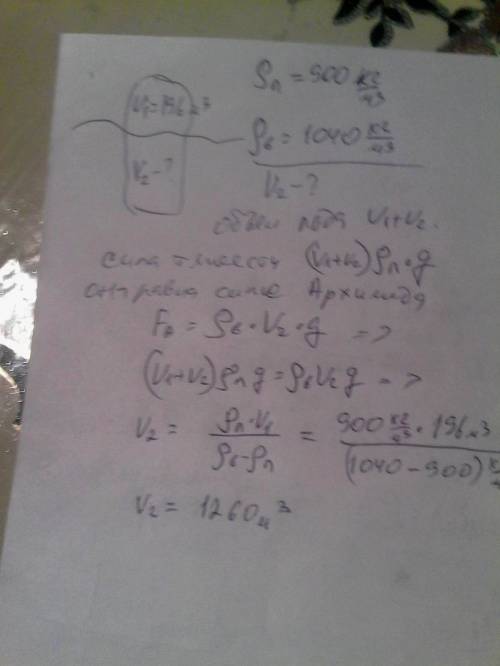 V₁=196 м³
V₂ - ?
ρл = 900 кг/м³
ρв = 1040 кг/м³
V₂ - ?
объем льда V₁+V₂.
сила тяжести (V₁+V₂)ρл·g
она равна силе Архимеда
FА = ρв·V₂·g =>
(V₁+V₂)ρл g = ρв V₂ g =>
V₂ = ρл·V₁ / ρв-ρл = 900 кг/м³ · 196 м³ / (1040-900) к
V₂ = 1260 м³